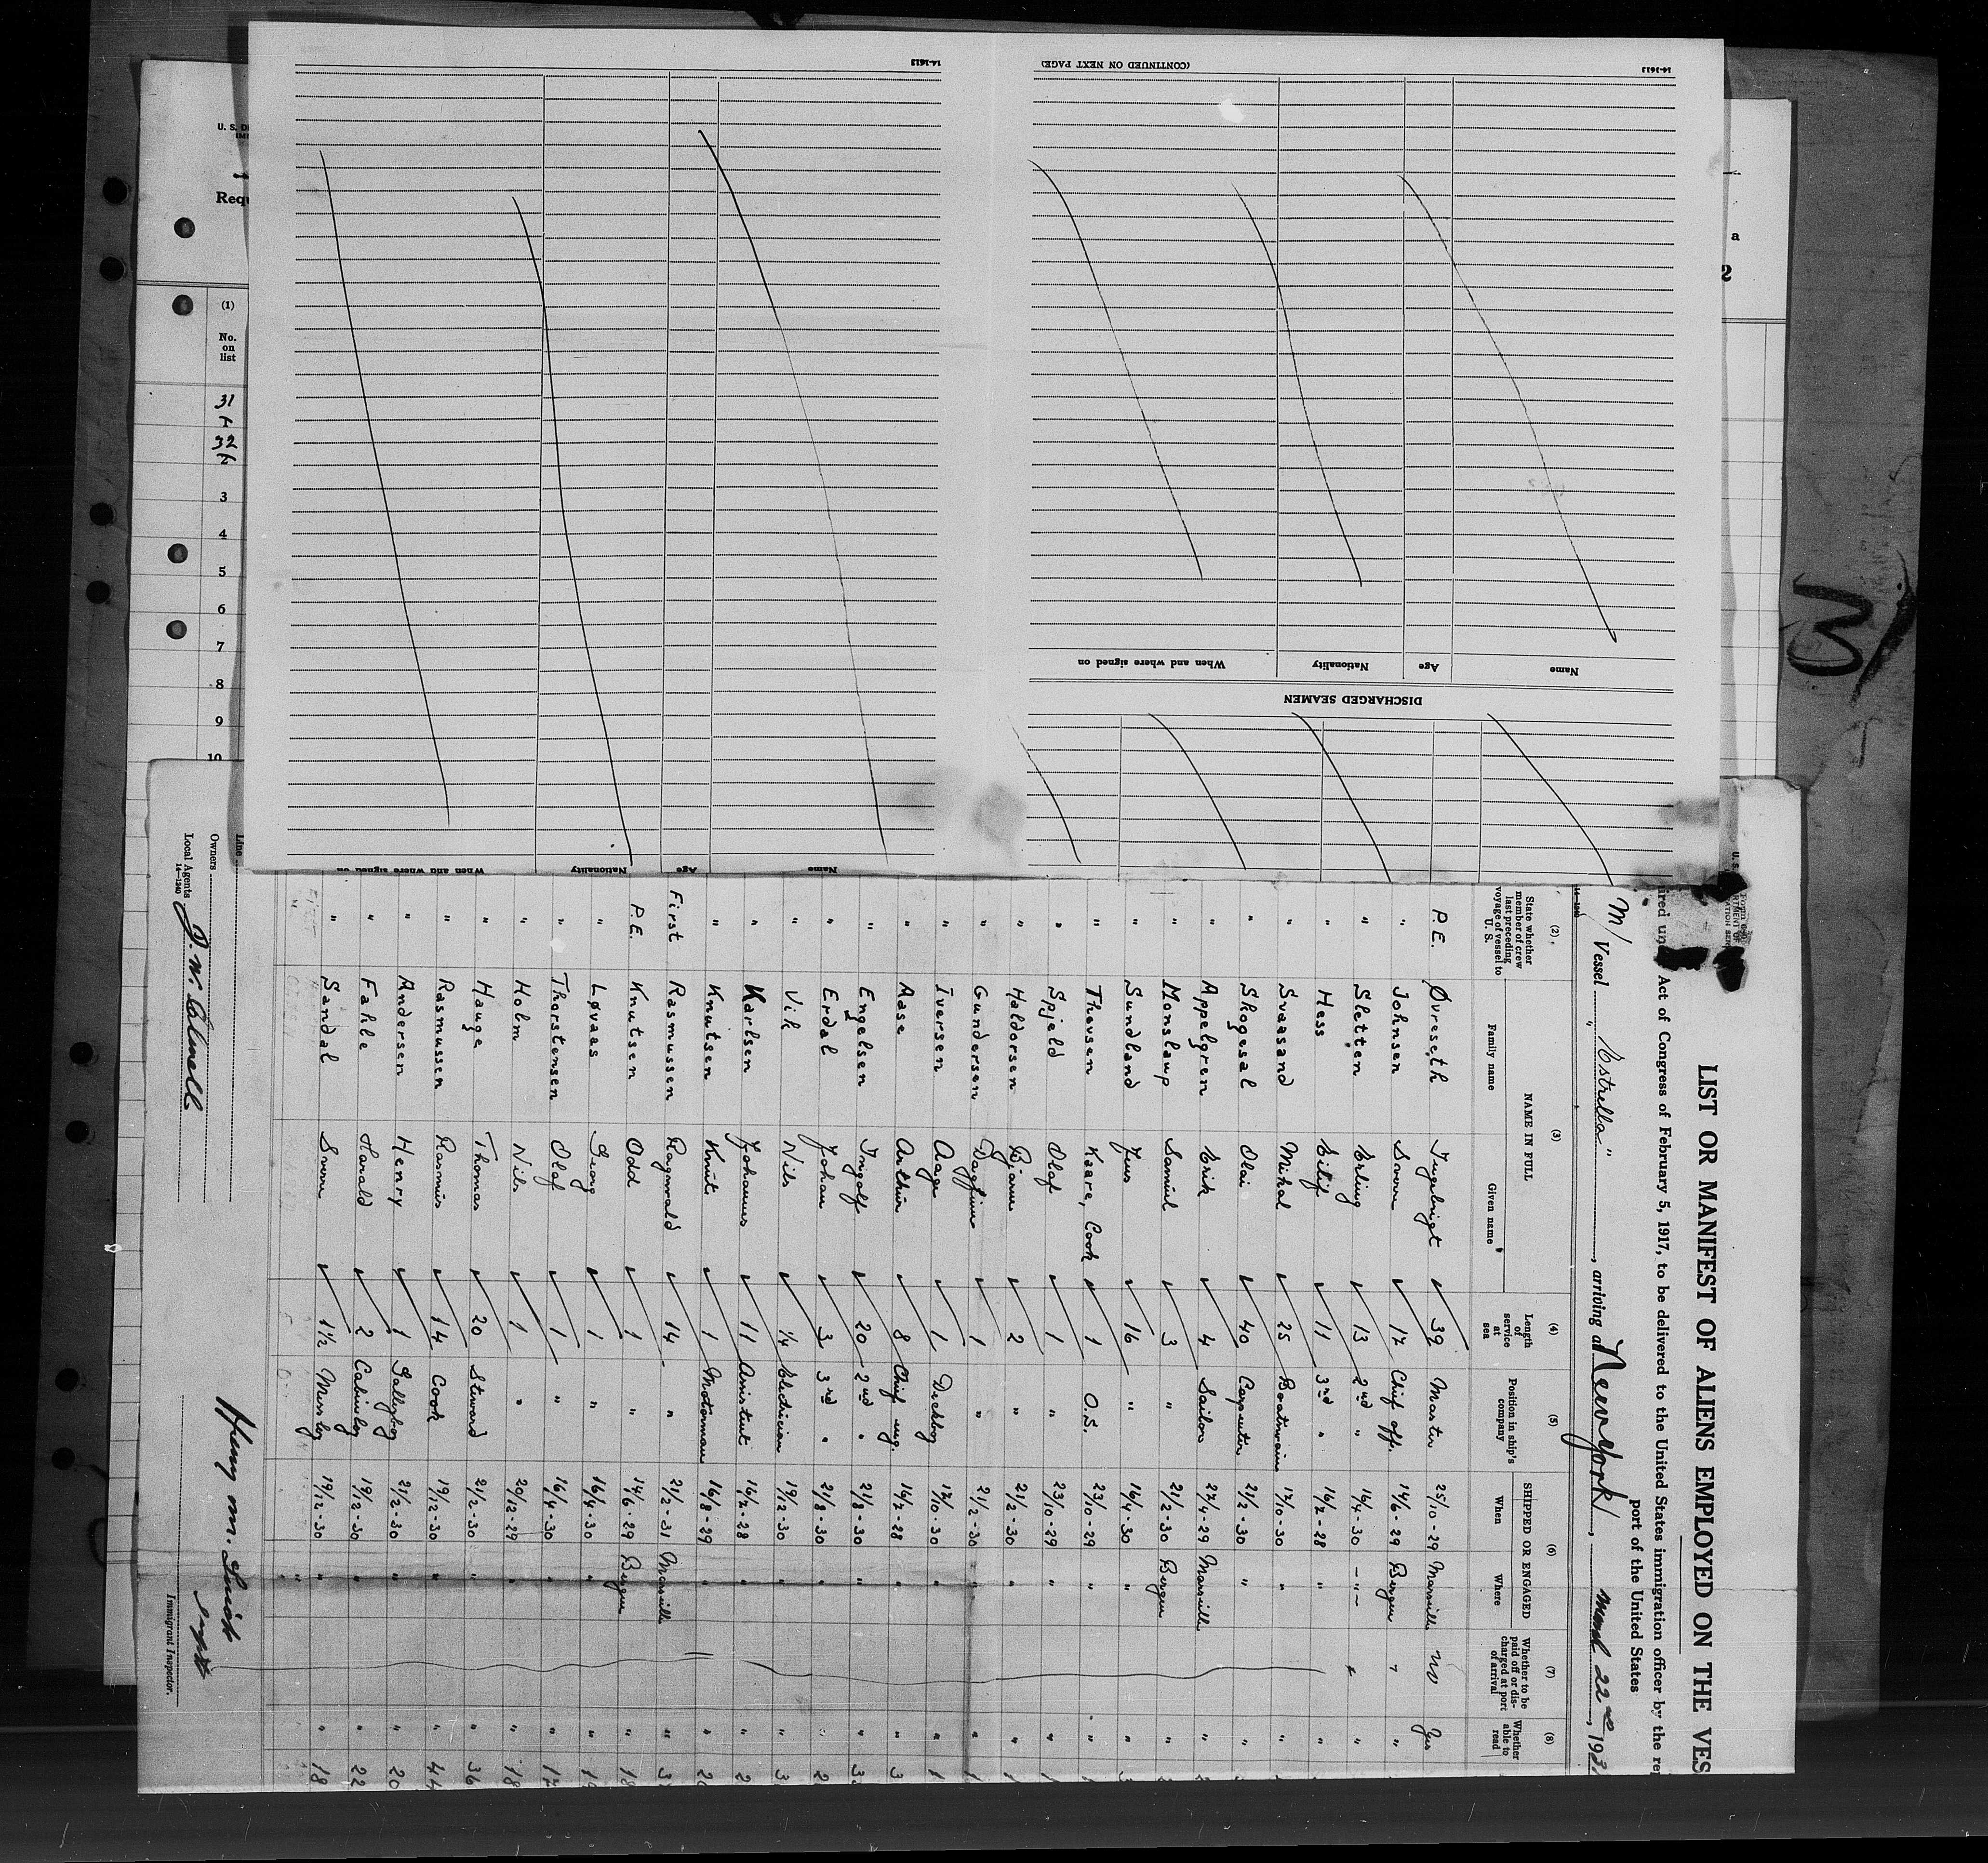 LIST OR MANIFEST OF ALIENS EMPLOYED ON THE VES
Act of Congress of February 5, 1917, to be delivered to the United States immigration officer by the
port of the United States
M/ Vessel "Estrella", arriving at New York, March 22nd, 193
(2) (3) (4) (5) (6) (7) (8)
State whether member of crew last preceding voyage of vessel to U. S. NAME IN FULL Family name Given name Length of service at sea Position in ship's company SHIPPED OR ENGAGED When Where Whether to be paid off or discharged at port of arrival Whether able to read
P.E. Øvreseth Ingebrigt 39 Master 25/10-29 Marseille no Yes
" Johnsen Sverre 17 Chief off. 14/6-29 Bergen " "
" Sletten Erling 13 2nd " 16/4-30 -"- " "
" Hess Eilif 11 3rd " 16/7-28 " "
" Svaasand Mikal 25 Boatswain 17/10-30 " "
" Skogesal Olai 40 Carpenter 21/2-30 " "
" Appelgren Erik 4 Sailor 27/4-29 Marseille "
" Monslaup Samuel 3 " 21/2-30 Bergen "
" Sundland Jens 16 " 16/4-30 " "
" Thevsen Kaare, Cook 1 O.S. 23/10-29 " "
" Spjeld Olof 1 " 23/10-29 " "
" Haldorsen Bjarne 2 " 21/2-30 " "
" Gundersen Dagfinn 1 " 21/2-30 " "
" Iversen Aage 1 Deckboy 17/10-30 " "
" Aase Arthur 8 Chief eng. 16/7-28 " "
" Engelsen Ingolf 20 2nd " 21/8-30 " "
" Erdal Johan 3 3rd " 21/8-30 " "
" Vik Nils 1/4 Electrician 19/12-30 " "
" Karlsen Johannes 11 Assistent 16/7-28 " "
" Knutsen Knut 1 Motorman 16/8-29 " "
First Rasmussen Ragnvald 14 " 21/2-31 Marseille "
P.E. Knutsen Odd 1 " 14/6-29 Bergen "
" Løvaas Georg 1 " 16/4-30 " "
" Thorstensen Olof 1 " 16/4-30 " "
" Holm Nils 1 " 20/12-29 " " 18
" Hauge Thomas 20 Steward 21/2-30 " " 36
" Rasmussen Rasmus 14 Cook 19/12-30 " " 44
" Andersen Henry 1 Galleyboy 21/2-30 " " 20
" Fahle Harald 2 Cabinboy 19/12-30 " " 22
" Sandal Sverre 1 1/2 Messboy 19/12-30 " " 18
Line
Owners
Local Agents
14-1240
Immigrant Inspector.
14-1613
(CONTINUED ON NEXT PAGE)
14-1613
Name Age Nationality When and where signed on
DISCHARGED SEAMEN
Name Age Nationality When and where signed on
Requ
(1)
No. on list
31
32
2
3
4
5
6
7
8
9
10
a
2
31